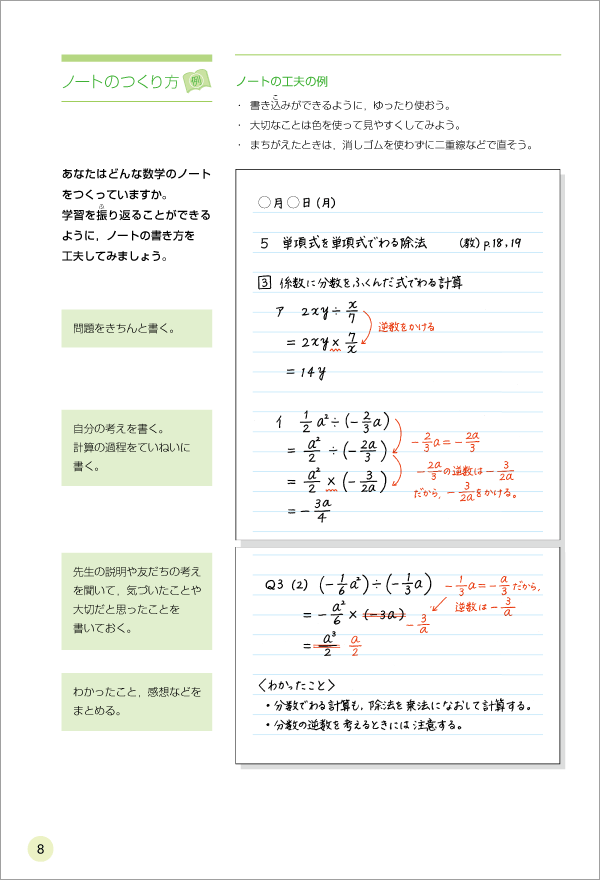 ノートのつくり方 例
あなたはどんな数学のノート
をつくっていますか。
学習を振り返ることができる
ように，ノートの書き方を
工夫してみましょう。
問題をきちんと書く。
自分の考えを書く。
計算の過程をていねいに
書く。
先生の説明や友だちの考え
を聞いて，気づいたことや
大切だと思ったことを
書いておく。
わかったこと，感想などを
まとめる。
ノートの工夫の例
・ 書き込みができるように，ゆったり使おう。
・ 大切なことは色を使って見やすくしてみよう。
・ まちがえたときは，消しゴムを使わずに二重線などで直そう。
○月○日(月)
5 単項式を単項式でわる除法 (教)p.18,19
3 係数に分数をふくんだ式でわる計算
ア 2xy÷x/7
逆数をかける
=2xy×7/x
=14y
イ 1/2a²÷(-2/3a)
=a²/2÷(-2a/3)
-2/3a=-2a/3
=a²/2×(-3/2a)
-2a/3の逆数は-3/2a
だから，-3/2aをかける。
=-3a/4
Q3 (2) (-1/6a²)÷(-1/3a)
-1/3a=-a/3だから，
逆数は-3/a
=-a²/6×(-3a) -3/a
=a³/2 a/2
〈わかったこと〉
・分数でわる計算も，除法を乗法になおして計算する。
・分数の逆数を考えるときには注意する。
8